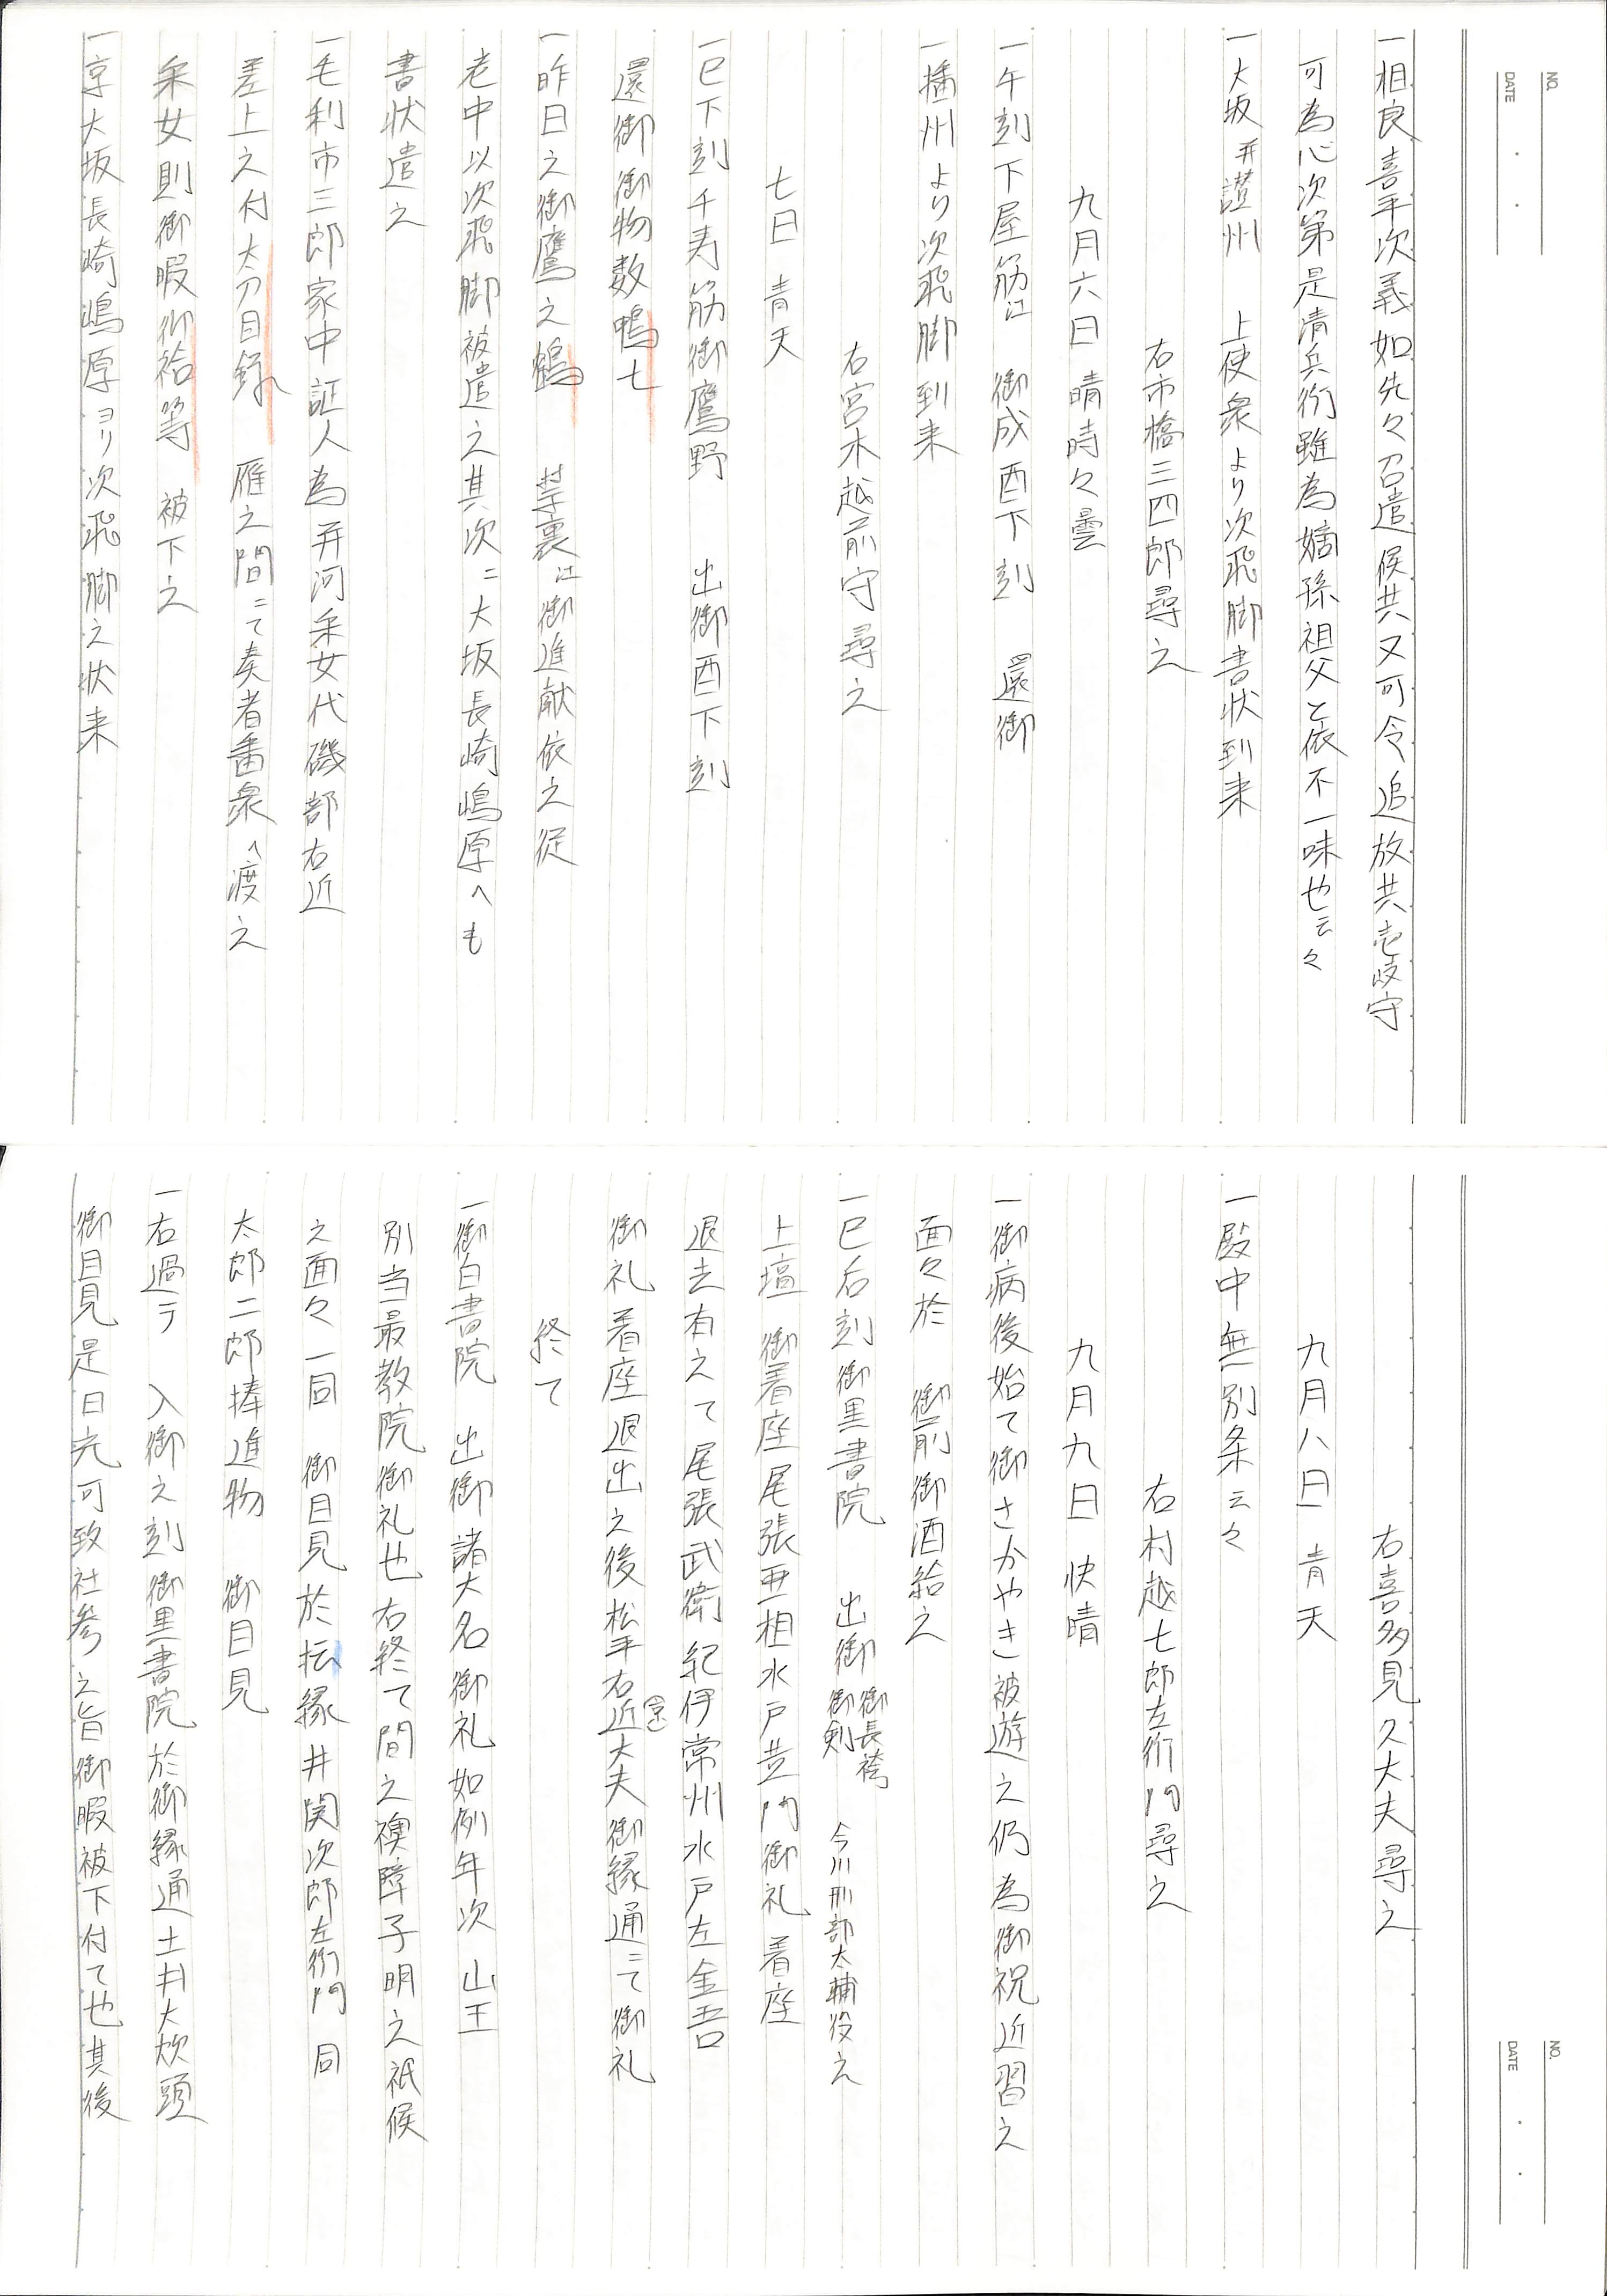 NO.
DATE ・ ・
一相良喜平次義如先々召遣候共又可令追放共壱岐守
可為心次第是清兵衛雖為嫡孫祖父と依不一味也云々
一大坂并讃州 上使衆より次飛脚書状到来
右市橋三四郎尋之
九月六日 晴時々曇
一午刻下屋筋江 御成酉下刻 還御
一播州より次飛脚到来
右宮木越前守尋之
七日 青天
一巳下刻千寿筋御鷹野 出御酉下刻
還御御物数鴨七
一昨日之御鷹之鶴 禁裏江御進献依之従
老中以次飛脚被遣之其次ニ大坂長崎嶋原へも
書状遣之
一毛利市三郎家中証人為井河采女代磯部右近
差上之付太刀目録 雁之間ニて奏者番衆へ渡之
采女則御暇御袷等 被下之
一京大坂長崎嶋原ヨリ次飛脚之状来
NO.
DATE ・ ・
右喜多見久大夫尋之
九月八日 青天
一殿中無別条云々
右村越七郎左衛門尋之
九月九日 快晴
一御病後始て御さかやき被遊之仍為御祝近習之
面々於 御前御酒給之
一巳后刻御黒書院 出御 御長袴 御剣 今川刑部太輔役之
上壇 御着座尾張亜相水戸黄門御礼着座
退去有之て尾張武衛紀伊常州水戸左金吾
御礼着座退出之後松平右近大夫御縁通ニて御礼
終て
一御白書院 出御諸大名御礼如例年次 山王
別当最教院御礼也右終て間之襖障子明之祗候
之面々一同 御目見於板縁井関次郎左衛門 同
太郎二郎捧進物 御目見
一右過テ 入御之刻御黒書院於御縁通土井大炊頭
御目見是日光可致社参之旨御暇被下付て也其後